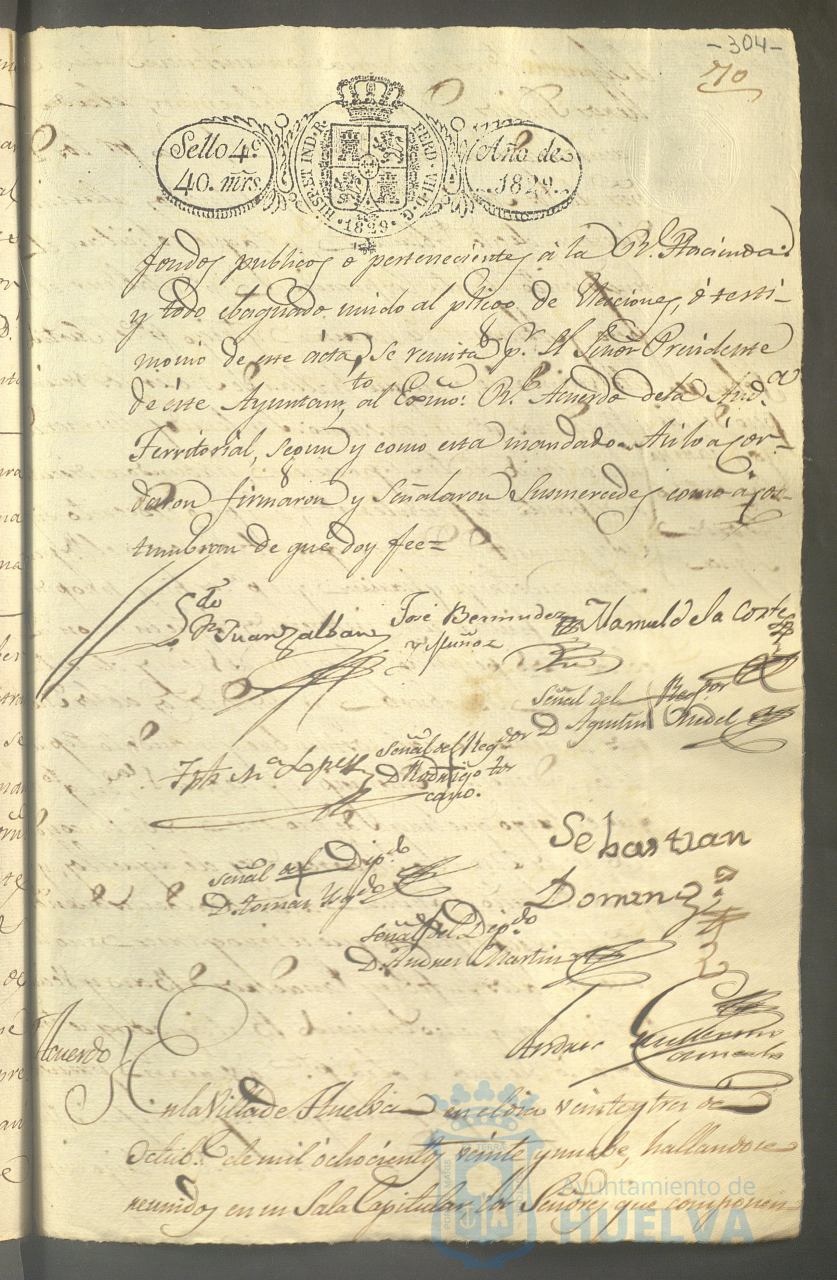 -304-
710
Sello 4º
40. mrs.
HISP. ET IND. R.
FERD. VII. D. G.
·1829·
Año de
1829.
fondos publicos o pertenecientes à la Rl. Hacienda:
y todo unido al de Elecciones, ó testi-
monio de este ácta, se remita pr. El Señor Presidente
de éste Ayuntamto. al Exmo. Rl. Acuerdo dela Auda.
Territorial, segun y como esta mandado. Asi lo acor-
daron firmaron y señalaron Susmercedes como acos-
tumbran de que doy fee=
Juan Zalban
José Bermudez
y Muñoz
Manuel de la Corte
Señal del Regdor
D. Agustin
Lopez
Señal del Regdor
D. Rodrigo tos
cano.
Sebastian
Doming
Señal del Dipdo
D. Tomas
Señal del Dipdo
D. Andres Martin
Andres Guillermo
Acuerdo
En la Villa de Huelva en el dia veinte y tres de
Octube. de mil ochocientos veinte y nuebe, hallandose
reunidos en su Sala Capitular, los Señores que componen
Ayuntamiento de
HUELVA